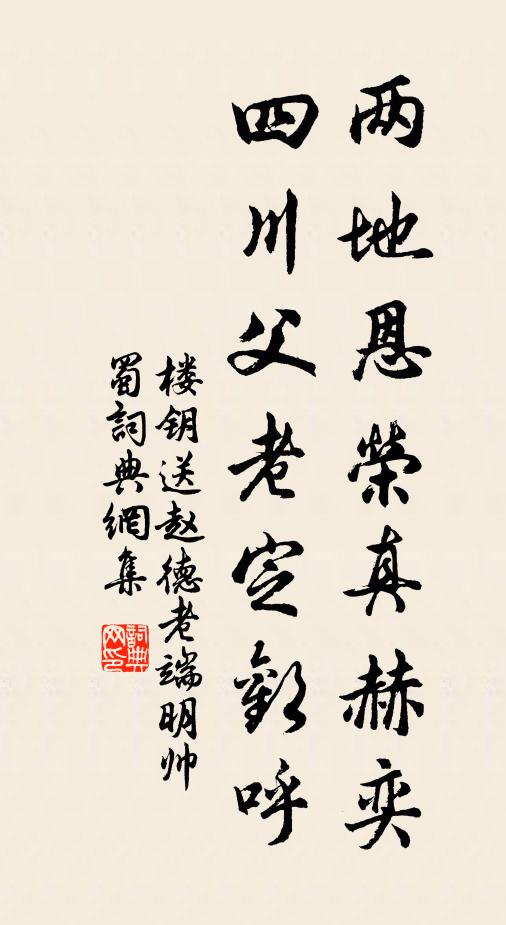 两地恩榮真赫奕
四川父老定歡呼
楼钥送赵德老端明帅
蜀詞典網集
詞典网印